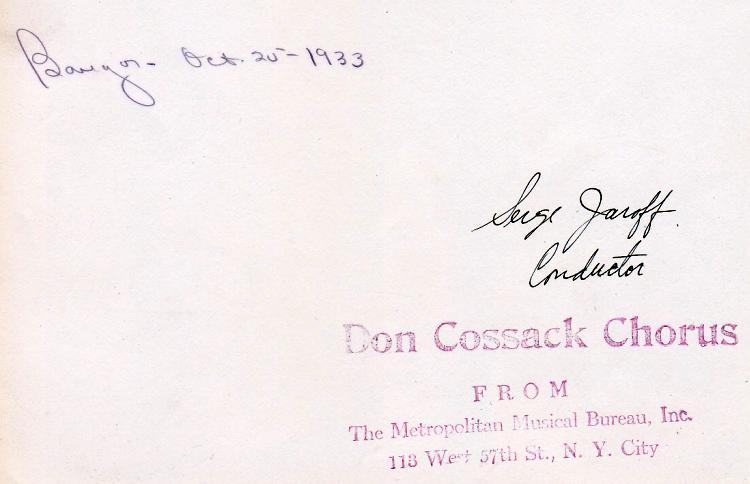 Bangor - Oct. 25 - 1933
Serge Jaroff.
Conductor
Don Cossack Chorus
FROM
The Metropolitan Musical Bureau, Inc.
113 West 57th St., N. Y. City